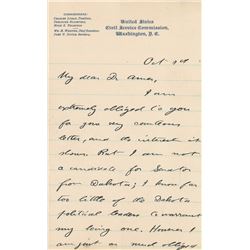 COMMISSIONERS:
CHARLES LYMAN, President,
THEODORE ROOSEVELT,
HUGH S. THOMPSON.
WM. H. WEBSTER, Chief Examiner.
JOHN T. DOYLE, Secretary.
United States
Civil Service Commission,
Washington, D. C.
Oct
My dear Dr Ames,
I am
extremely obliged to you
for your very courteous
letter, and the interest it
shows. But I am not
a candidate for Senator
from Dakota; I know far
too little of the Dakota
political leaders to warrant
my being one. However I
am just as much obliged